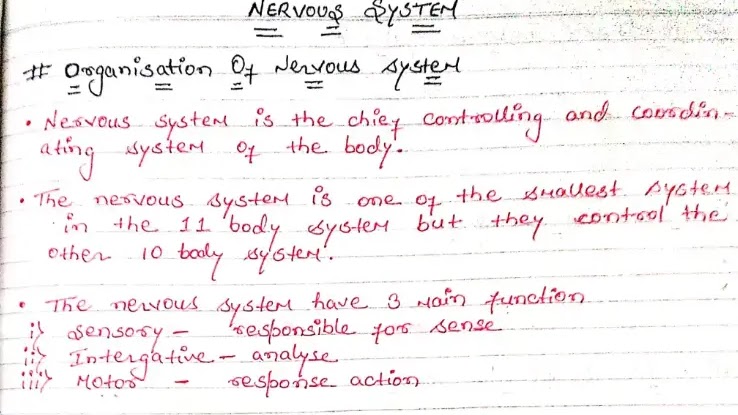 NERVOUS SYSTEM
# Organisation Of Nervous system
• Nervous system is the chief controlling and coordin-
ating system of the body.
• The nervous system is one of the smallest system
in the 11 body system but they control the
other 10 body system.
• The nervous system have 3 main function
i) sensory - responsible for sense
ii) Intergative - analyse
iii) Motor - response action